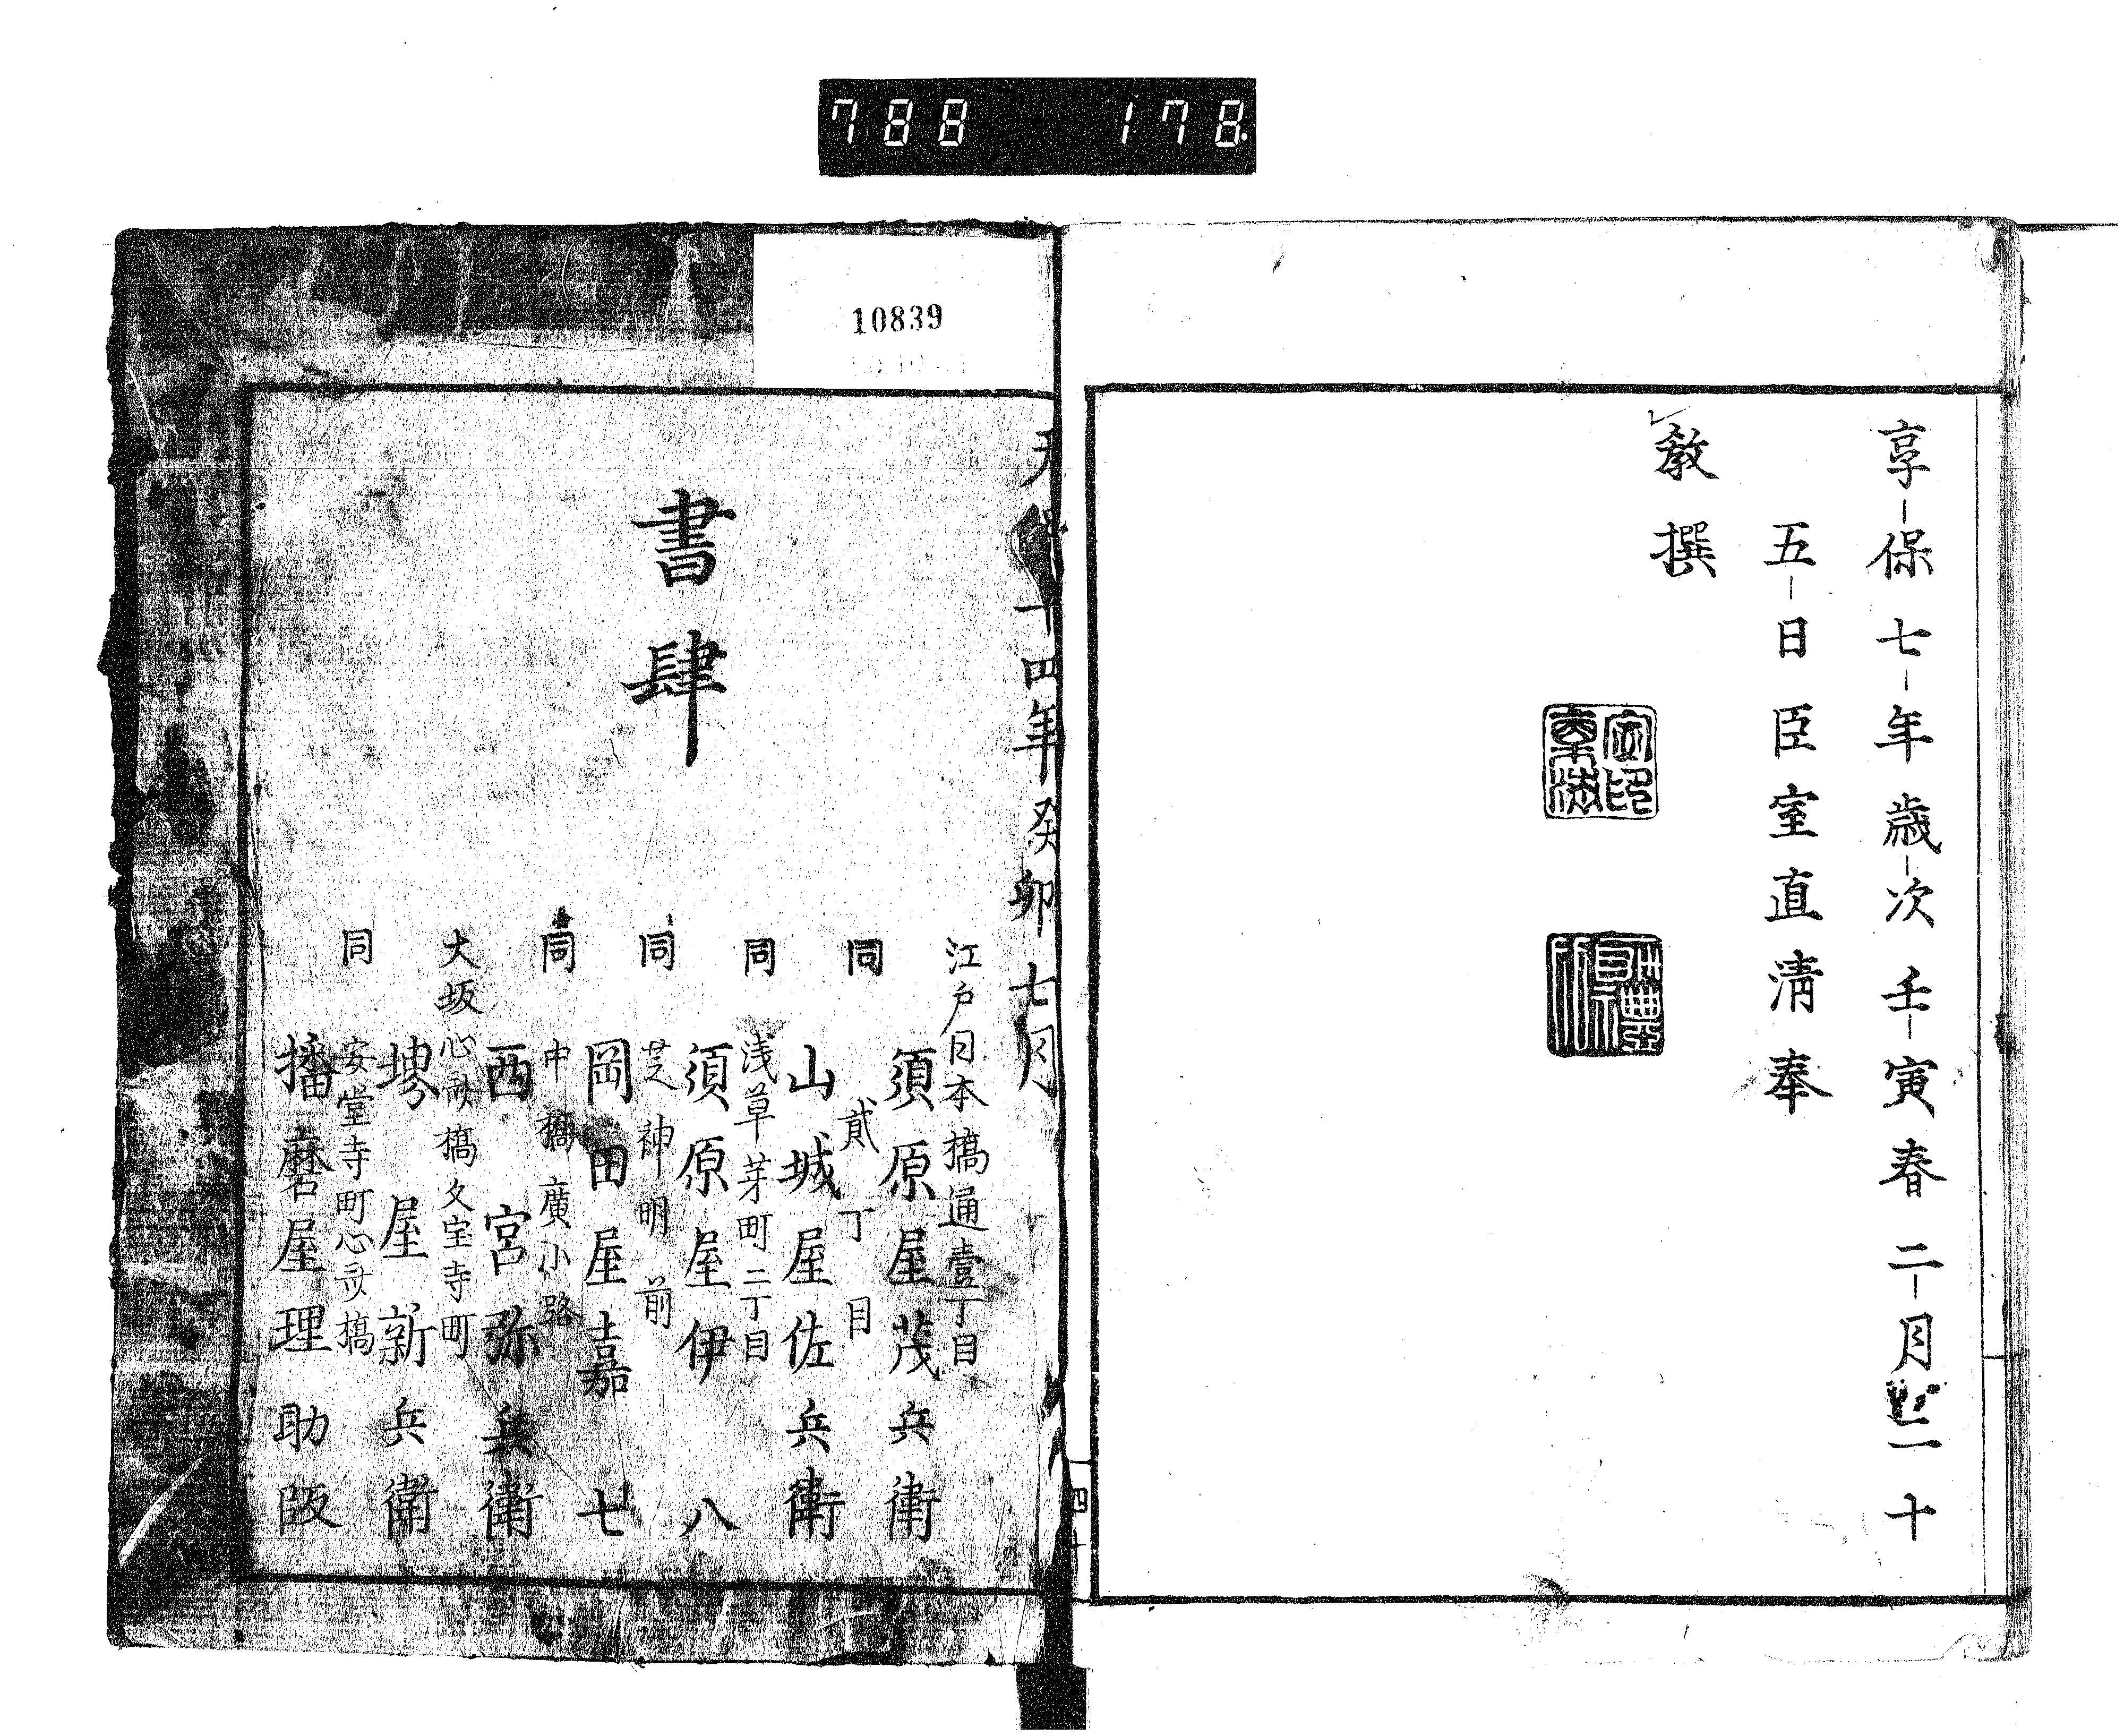 788 178
10839
享保七年歳次壬寅春二月二十
五日臣室直清奉
教撰
四十
天保十四年癸卯七月
書肆
江戸日本橋通壹丁目
須原屋茂兵衛
同 貳丁目
山城屋佐兵衛
同 浅草茅町二丁目
須原屋伊八
同 芝神明前
岡田屋嘉七
同 中橋廣小路
西宮弥兵衛
大坂心斎橋久宝寺町
堺屋新兵衛
同 安堂寺町心斎橋
播磨屋理助版